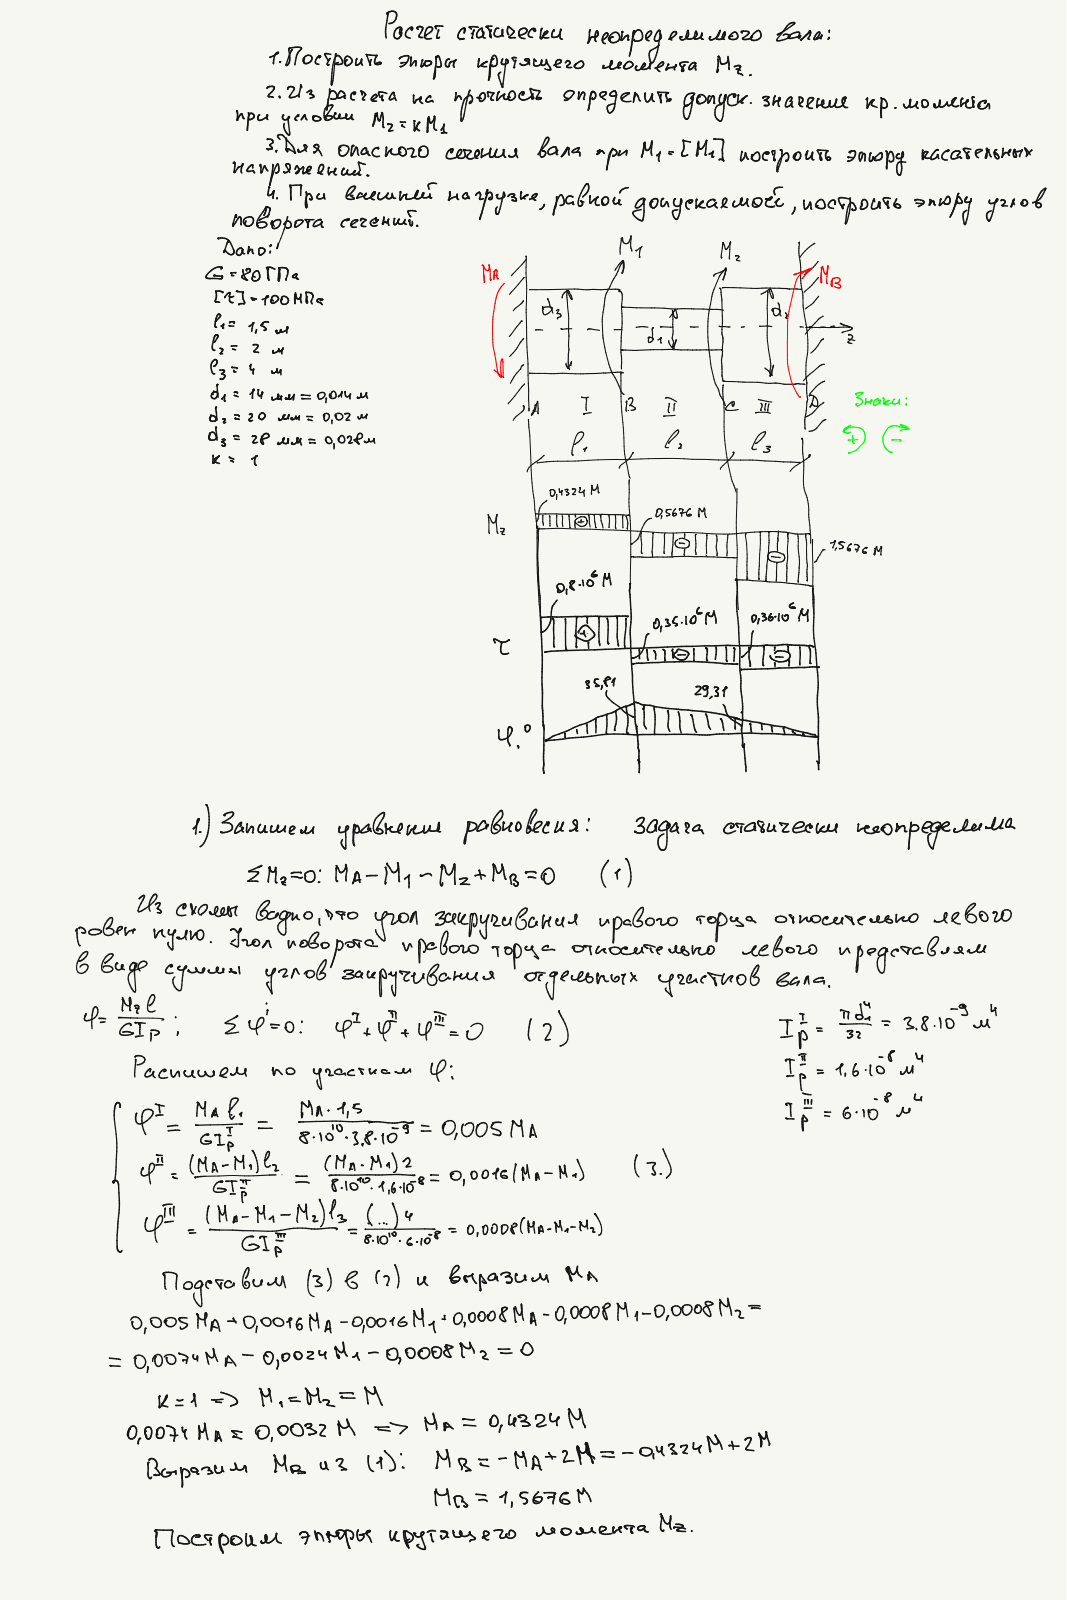 Расчет статически неопределимого вала:
1. Построить эпюры крутящего момента Mz.
2. Из расчета на прочность определить допуск. значение кр. момента
при условии M₂ = кM₁
3. Для опасного сечения вала при M₁ = [M₁] построить эпюру касательных
напряжений.
4. При внешней нагрузке, равной допускаемой, построить эпюру углов
поворота сечений.
Дано:
G = 80 ГПа
[τ] = 100 МПа
l₁ = 1,5 м
l₂ = 2 м
l₃ = 4 м
d₁ = 14 мм = 0,014 м
d₂ = 20 мм = 0,02 м
d₃ = 28 мм = 0,028 м
к = 1
MA M₁ M₂ MB
d₃ d₁ d₂ z
A I B II C III D
l₁ l₂ l₃
Знаки:
+ −
Mz 0,4324 M + 0,5676 M − − 1,5676 M
τ 0,8·10⁶ M + 0,35·10⁶ M − 0,36·10⁶ M −
φ,° 35,81 29,31
1.) Запишем уравнение равновесия: Задача статически неопределима
ΣMz=0: MA − M₁ − M₂ + MB = 0 (1)
Из схемы видно, что угол закручивания правого торца относительно левого
равен нулю. Угол поворота правого торца относительно левого представим
в виде суммы углов закручивания отдельных участков вала.
φ = Mz l / GIp ; Σφⁱ=0: φᴵ + φᴵᴵ + φᴵᴵᴵ = 0 (2)
Ipᴵ = πd₁⁴/32 = 3.8·10⁻⁹ м⁴
Ipᴵᴵ = 1,6·10⁻⁸ м⁴
Ipᴵᴵᴵ = 6·10⁻⁸ м⁴
Распишем по участкам φ:
φᴵ = MA l₁ / GIpᴵ = MA·1,5 / 8·10¹⁰·3,8·10⁻⁹ = 0,005 MA
φᴵᴵ = (MA−M₁)l₂ / GIpᴵᴵ = (MA·M₁)2 / 8·10¹⁰·1,6·10⁻⁸ = 0,0016(MA−M₁) (3.)
φᴵᴵᴵ = (MA−M₁−M₂)l₃ / GIpᴵᴵᴵ = (...)4 / 8·10¹⁰·6·10⁻⁸ = 0,0008(MA−M₁−M₂)
Подставим (3) в (2) и выразим MA
0,005 MA + 0,0016 MA − 0,0016 M₁ + 0,0008 MA − 0,0008 M₁ − 0,0008 M₂ =
= 0,0074 MA − 0,0024 M₁ − 0,0008 M₂ = 0
к=1 => M₁ = M₂ = M
0,0074 MA = 0,0032 M => MA = 0,4324 M
Выразим MB из (1): MB = −MA + 2M = −0,4324 M + 2M
MB = 1,5676 M
Построим эпюры крутящего момента Mz.